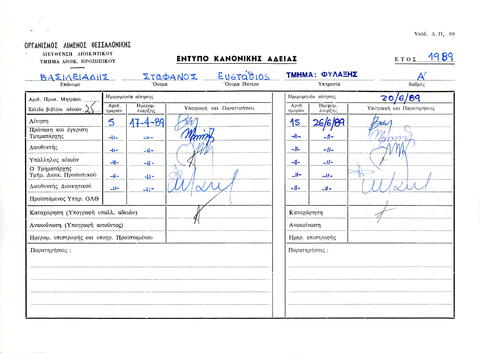 Υπόδ. Δ.Π. 99
ΟΡΓΑΝΙΣΜΟΣ ΛΙΜΕΝΟΣ ΘΕΣΣΑΛΟΝΙΚΗΣ
ΔΙΕΥΘΥΝΣΗ ΔΙΟΙΚΗΤΙΚΟΥ
ΤΜΗΜΑ ΔΙΟΙΚ. ΠΡΟΣΩΠΙΚΟΥ
ΕΝΤΥΠΟ ΚΑΝΟΝΙΚΗΣ ΑΔΕΙΑΣ
ΕΤΟΣ 1989
ΒΑΣΙΛΕΙΑΔΗΣ ΣΤΕΦΑΝΟΣ Ευστάθιος ΤΜΗΜΑ: ΦΥΛΑΞΗΣ Α'
Επώνυμο Όνομα Όνομα Πατέρα Βαθμός
Αριθ. Προσ. Μητρώου Ημερομηνία αίτησης Ημερομηνία αίτησης 20/6/89
Σελίδα βιβλίου αδειών 25 Αριθ. ημερών Ημερομ. έναρξης Υπογραφή και Παρατηρήσεις Αριθ. ημερών Ημερομ. έναρξης Υπογραφή και Παρατηρήσεις
Αίτηση 5 17-4-89 15 26/6/89
Πρόταση και έγκριση Τμηματάρχης -//- -//- -//- -//-
Διευθυντής -//- -//- -//- -//-
Υπάλληλος αδειών -//- -//- -//- -//-
Ο Τμηματάρχης
Τμήμ. Διοικ. Προσωπικού -//- -//- -//- -//-
Διευθυντής Διοικητικού -//- -//- -//- -//-
Προϊστάμενος Υπηρ. ΟΛΘ
Καταχώρηση (Υπογραφή υπαλλ. αδειών) Καταχώρηση
Ανακοίνωση (Υπογραφή αιτούντος) Ανακοίνωση
Ημερομ. επιστροφής και υπογρ. Προϊσταμένου Ημερ. επιστροφής
Παρατηρήσεις : Παρατηρήσεις :